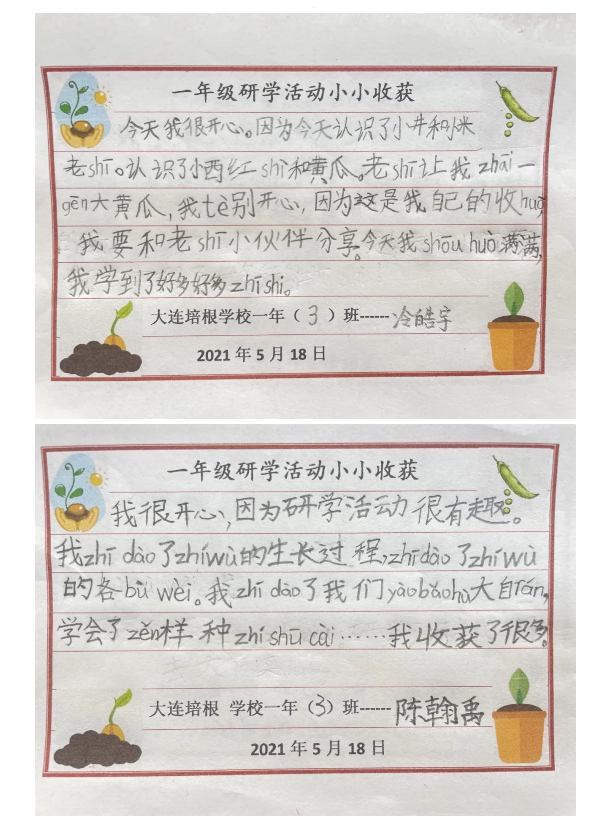 一年级研学活动小小收获
今天我很开心。因为今天认识了小井和小米
老shī。认识了小西红shì和黄瓜。老shī让我zhāi一
gēn大黄瓜，我tè别开心，因为这是我自己的收huò，
我要和老shī小伙伴分享。今天我shōu huò满满，
我学到了好多好多zhīshi。
大连培根学校一年（3）班------冷皓宇
2021年5月18日
一年级研学活动小小收获
我很开心，因为研学活动很有趣。
我zhī dào了zhíwù的生长过程，zhīdào了zhíwù
的各bù wèi。我zhī dào了我们yàobǎohù大自rán，
学会了zěn样种zhí shū cài……我收获了很多。
大连培根 学校一年（3）班------陈翰禹
2021年5月18日